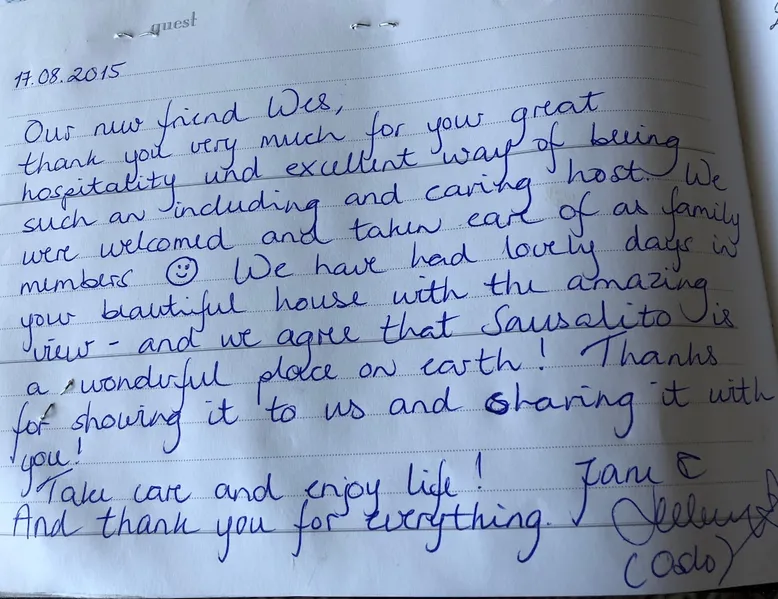 guest
17.08.2015
Our new friend Wes,
thank you very much for your great
hospitality und excellent way of being
such an including and caring host. We
were welcomed and taken care of as family
members ☺ We have had lovely days in
your beautiful house with the amazing
view - and we agree that Sausalito is
a wonderful place on earth! Thanks
for showing it to us and sharing it with
you!
Take care and enjoy life!
And thank you for everything.
(Oslo)